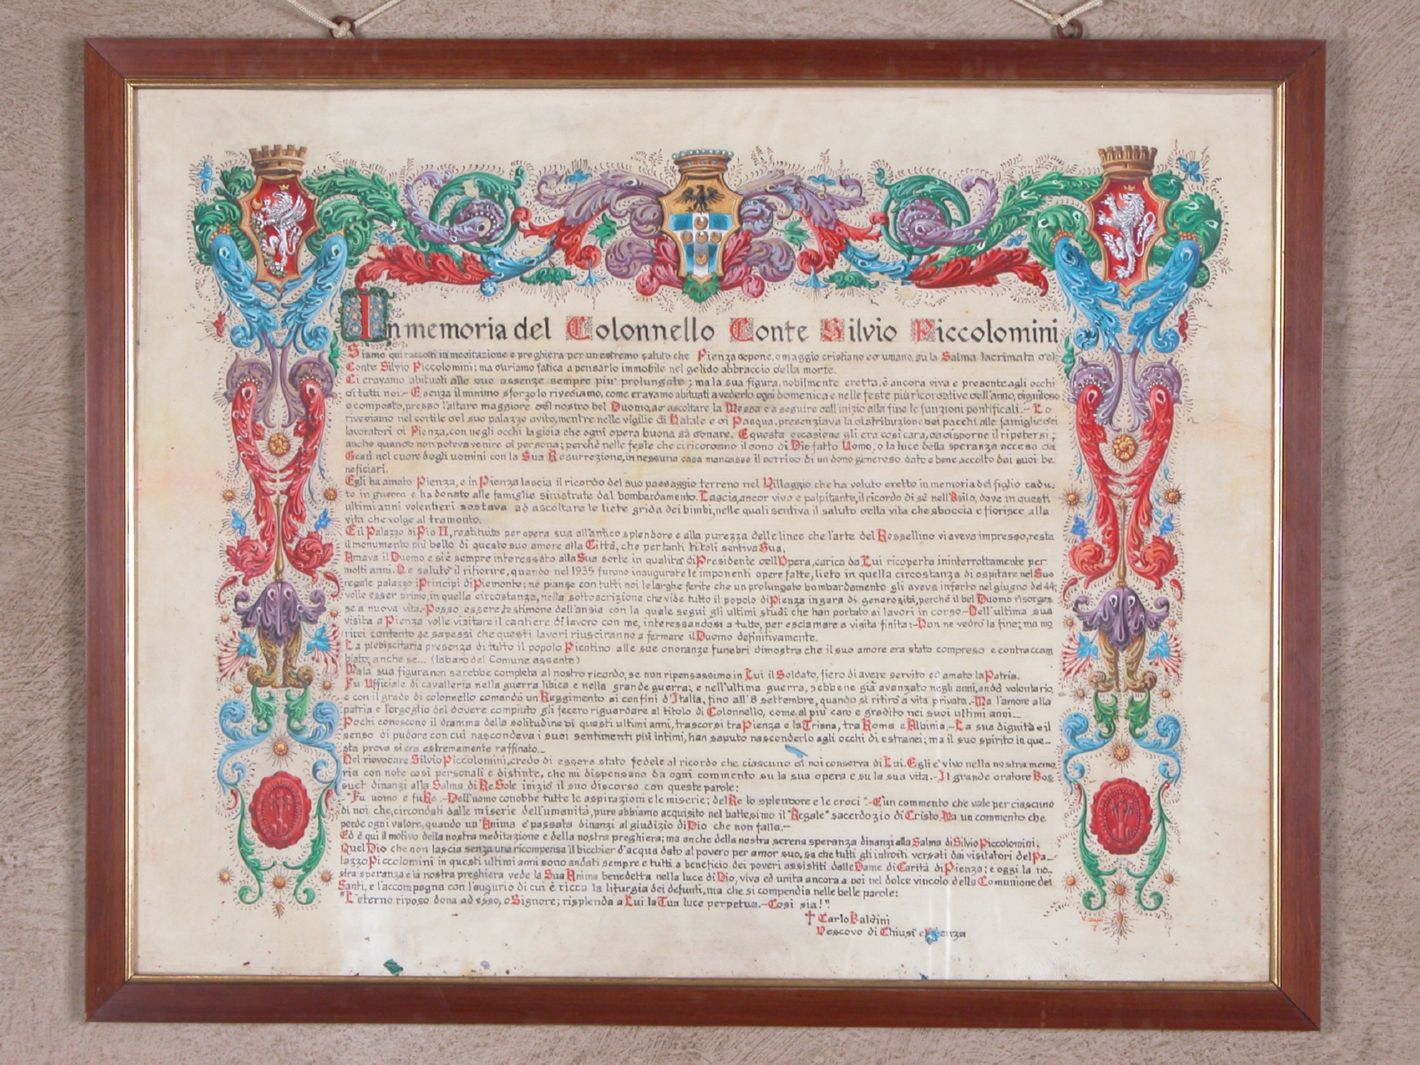 In memoria del Colonnello Conte Silvio Piccolomini
Siamo qui raccolti in meditazione e preghiera per un estremo saluto che Pienza depone, omaggio cristiano ed umano, su la Salma lacrimata del
Conte Silvio Piccolomini; ma duriamo fatica a pensarlo immobile nel gelido abbraccio della morte.
Ci eravamo abituati alle sue assenze sempre piu' prolungate; ma la sua figura, nobilmente eretta, è ancora viva e presente agli occhi
di tutti noi.- E senza il minimo sforzo lo rivediamo, come eravamo abituati a vederlo ogni domenica e nelle feste più ricordative dell'anno, dignitoso
e composto, presso l'altare maggiore del nostro bel Duomo, ad ascoltare la Messa e a seguire dall'inizio alla fine le funzioni pontificali.- Lo
rivediamo nel cortile del suo palazzo avito, mentre nelle vigilie di Natale e di Pasqua, presenziava la distribuzione dei pacchi alle famiglie dei
lavoratori di Pienza, con negli occhi la gioia che ogni opera buona sa donare. E questa occasione gli era così cara, da disporne il ripetersi;
anche quando non poteva venire di persona; perchè nelle feste che ci ricordano il dono di Dio fatto Uomo, o la luce della speranza accesa da
Gesù nel cuore degli uomini con la Sua Resurrezione, in nessuna casa mancasse il sorriso di un dono generoso dato e bene accolto dai suoi be
neficiari.
Egli ha amato Pienza, e in Pienza lascia il ricordo del suo passaggio terreno nel Villaggio che ha voluto eretto in memoria del figlio cadu_
to in guerra e ha donato alle famiglie sinistrate dal bombardamento. Lascia, ancor vivo e palpitante, il ricordo di sè nell'Asilo, dove in questi
ultimi anni volentieri sostava ad ascoltare le liete grida dei bimbi, nelle quali sentiva il saluto della vita che sboccia e fiorisce alla
vita che volge al tramonto.
E il Palazzo di Pio II, restituito per opera sua all'antico splendore e alla purezza delle linee che l'arte del Rossellino vi aveva impresso, resta
il monumento più bello di questo suo amore alla Città, che per tanti titoli sentiva Sua.
Amava il Duomo e si è sempre interessato alla Sua sorte in qualità di Presidente dell'Opera, carica da Lui ricoperta ininterrottamente per
molti anni. Ne salutò il rifiorire, quando nel 1935 furono inaugurate le imponenti opere fatte, lieto in quella circostanza di ospitare nel Suo
regale palazzo i Principi di Piemonte; ne pianse con tutti noi le larghe ferite che un prolungato bombardamento gli aveva inferto nel giugno del 44;
volle esser primo, in quella circostanza, nella sottoscrizione che vide tutto il popolo di Pienza in gara di generosità, perchè il bel Duomo risorges_
se a nuova vita.-Posso essere testimone dell'ansia con la quale seguì gli ultimi studi che han portato ai lavori in corso.-Dell'ultima sua
visita a Pienza volle visitare il cantiere di lavoro con me, interessandosi a tutto, per esclamare a visita finita:-Non ne vedrò la fine; ma mo
rirei contento se sapessi che questi lavori riusciranno a fermare il Duomo definitivamente.
La plebiscitaria presenza di tutto il popolo Pientino alle sue onoranze funebri dimostra che il suo amore era stato compreso e contraccam
biato; anche se... (labaro del Comune assente)
Ma la sua figura non sarebbe completa al nostro ricordo, se non ripensassimo in Lui il Soldato, fiero di avere servito ed amato la Patria.
Fu Ufficiale di cavalleria nella guerra libica e nella grande guerra; e nell'ultima guerra, sebbene già avanzato negli anni, andò volontario,
e con il grado di colonnello comandò un Reggimento ai confini d'Italia, fino all'8 settembre, quando si ritirò a vita privata.-Ma l'amore alla
patria e l'orgoglio del dovere compiuto gli fecero riguardare al titolo di Colonnello, come al più caro e gradito nei suoi ultimi anni._
Pochi conoscono il dramma della solitudine di questi ultimi anni, trascorsi tra Pienza e la Triana, tra Roma e Albinia.-La sua dignità e il
senso di pudore con cui nascondeva i suoi sentimenti più intimi, han saputo nasconderlo agli occhi di estranei; ma il suo spirito in que_
sta prova si era estremamente raffinato._
Nel rievocare Silvio Piccolomini, credo di essere stato fedele al ricordo che ciascuno di noi conserva di Lui. Egli e' vivo nella nostra memo_
ria con note così personali e distinte, che mi dispensano da ogni commento su la sua opera e su la sua vita.-Il grande oratore Bos_
suet dinanzi alla Salma di Re Sole inizio il suo discorso con queste parole:
-"Fu uomo e fu Re.-Dell'uomo conobbe tutte le aspirazioni e le miserie; del Re lo splendore e le croci".-E' un commento che vale per ciascuno
di noi che, circondati dalle miserie dell'umanità, pure abbiamo acquisito nel battesimo il "Regale" sacerdozio di Cristo. Ma un commento che
perde ogni valore, quando un'Anima e' passata dinanzi al giudizio di Dio che non falla.-
Ed è qui il motivo della nostra meditazione e della nostra preghiera; ma anche della nostra serena speranza dinanzi alla Salma di Silvio Piccolomini.
Quel Dio che non lascia senza una ricompensa il bicchier d'acqua dato al povero per amor suo, sa che tutti gli introiti versati dai visitatori del Pa_
lazzo Piccolomini in questi ultimi anni sono andati sempre e tutti a beneficio dei poveri assistiti dalle Dame di Carità di Pienza; e oggi la no_
stra speranza e la nostra preghiera vede la Sua Anima benedetta nella luce di Dio, viva ed unita ancora a noi nel dolce vincolo della Comunione dei
Santi, e l'accompagna con l'augurio di cui è ricca la liturgia dei defunti, ma che si compendia nelle belle parole:
"L'eterno riposo dona ad esso, o Signore; risplenda a Lui la Tua luce perpetua.-Così sia!".
† Carlo Baldini
Vescovo di Chiusi e Pienza